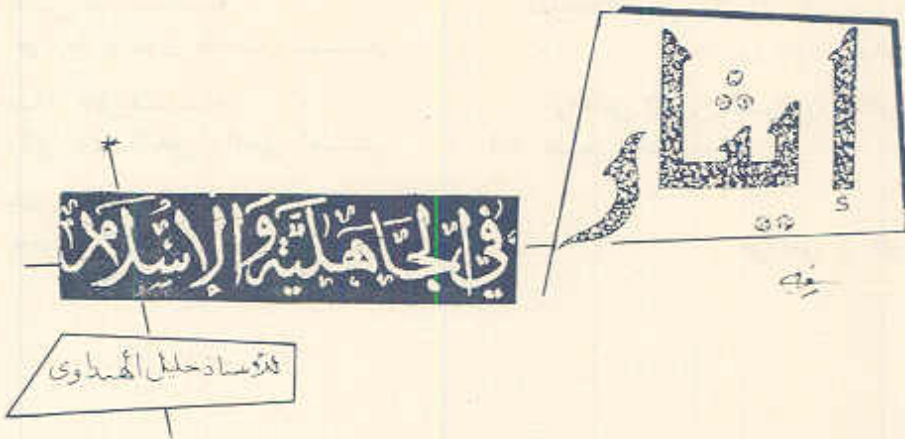 إيثار
في الجَاهليَّة وَالإسْلَام
للأستاذ خليل الهنداوى